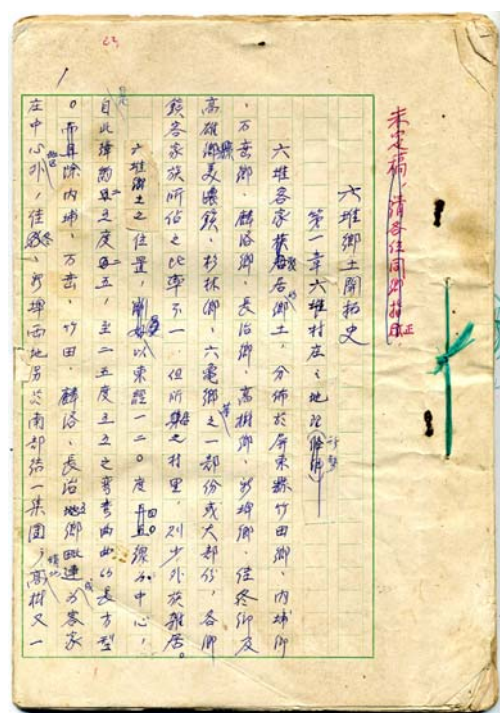 未定稿，請各位同鄉指正
六堆鄉土開拓史
第一章六堆村庄之地理
六堆客家族居鄉土，分佈於屏東縣竹田鄉、內埔鄉
、万峦鄉、麟洛鄉、長治鄉、高樹鄉、新埤鄉、佳冬鄉及
高雄縣美濃鎮、杉林鄉、六龜鄉之一部份或大部份，各鄉
鎮客家族所佔之比率不一，但所集之村里，則少外族雜居。
六堆鄉土之位置，以東經一二０度線為中心，
自北緯二五度至之彎弯曲曲的長方型
。而其除內埔、万峦、竹田、麟洛、長治鄉毗連為客家
庄中心外，佳冬、新埤兩地另於南部結一集團，高樹又一